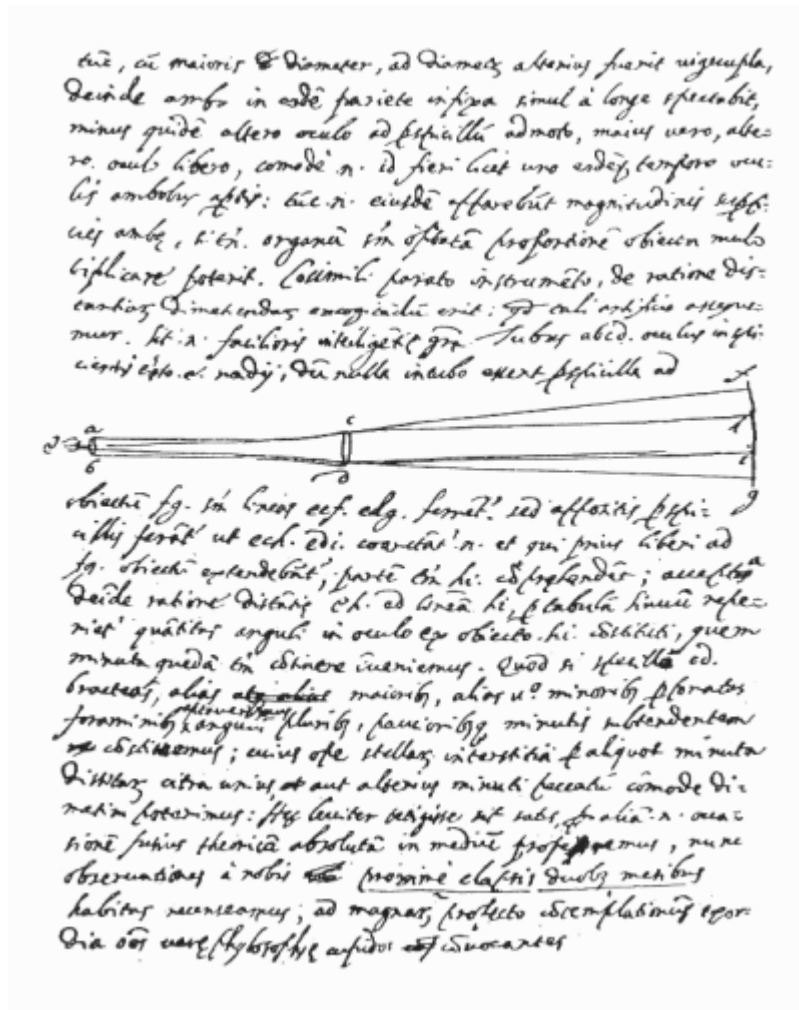 tūc, cū maioris diameter, ad diametꝝ alterius fuerit vigecupla,
deinde ambo in eodē pariete infixa simul à longe spectabit,
minus quidē altero oculo ad pspicillū admoto, maius vero, alte=
ro. oculo libero, comodè .n. id fieri licet uno eodēq tempore ocu=
lis ambobus aptis: tūc .n. eiusdē apparebūt magnitudinis
ambę, si tñ. organū sm optatā proportionē obiecta mul
tiplicare poterit. Cosimili parato instrumēto, de ratione dis=
tantiaꝝ dimetiendaꝝ erit: qd tali artificio assequi=
mur. Sit .n. facilioris intelligētię grā. Tubus abcd. oculus inspi=
cientis esto .e. radij, dū nulla in tubo essent pspicilla ad
f
a c h
e
b d i
g
obiectū fg. sm lineas ecf. edg. ferret.ʳ sed appositis pspi=
cillis ferātʳ ut ech. edi. coarctātʳ .n. et qui prius liberi ad
fg. obiectū extendebātʳ, partē tm hi. cōprehendēt; accepta
deīde ratione distātię eh. ad lineā hi, p tabulā sinuū repe=
rietʳ quātitas anguli in oculo ex obiecto .hi. cōstituti, quem
minuta quędā tm cōtinere īveniemus. Quod si specillo cd.
bracteas, alias maioribꝫ, alias v.º minoribꝫ pforatas
foraminibꝫ angulū pluribꝫ, paucioribꝫq minutis subtendentem
cōstituemus; cuius ope stellaꝝ interstitia p aliquot minuta
distitaꝝ citra unius, aut alterius minuti peccatū cōmode di=
metiri poterimus: Hęc leviter tetigisse sit satis, p aliā .n. occa=
sionē huius theoricā absolutā in mediū proferemus, nunc
observationes à nobis proximè elapsis duobꝫ mensibus
habitas recenseamus; ad magnarꝫ profecto cōtemplationū exor=
dia oēs verę phylosophię cupidos cōvocantes